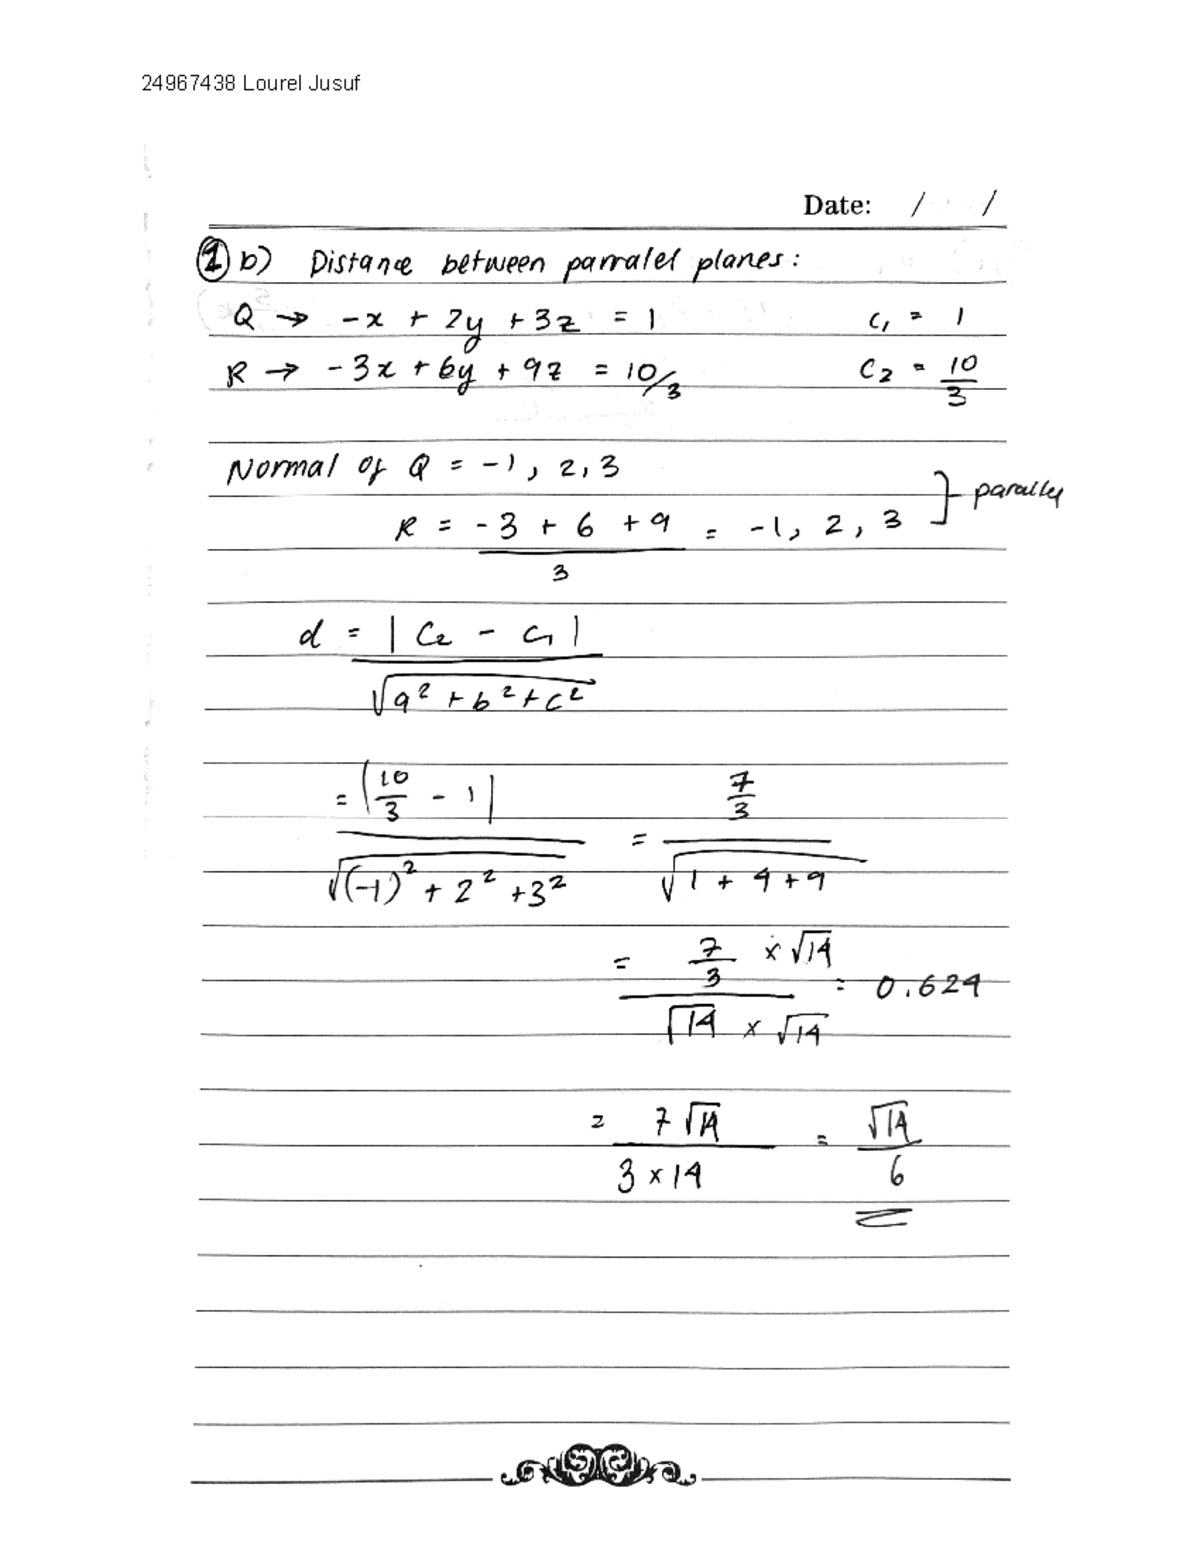 24967438 Lourel Jusuf
Date: / /
1 b) Distance between parralel planes:
Q → -x + 2y + 3z = 1 C₁ = 1
R → -3x + 6y + 9z = 10/3 C₂ = 10/3
Normal of Q = -1, 2, 3
R = (-3 + 6 + 9)/3 = -1, 2, 3 } parallel
d = |C₂ - C₁| / √(a² + b² + c²)
= |10/3 - 1| / √((-1)² + 2² + 3²) = (7/3) / √(1 + 4 + 9)
= (7/3 × √14) / (√14 × √14) = 0.624
= 7√14 / (3 × 14) = √14 / 6